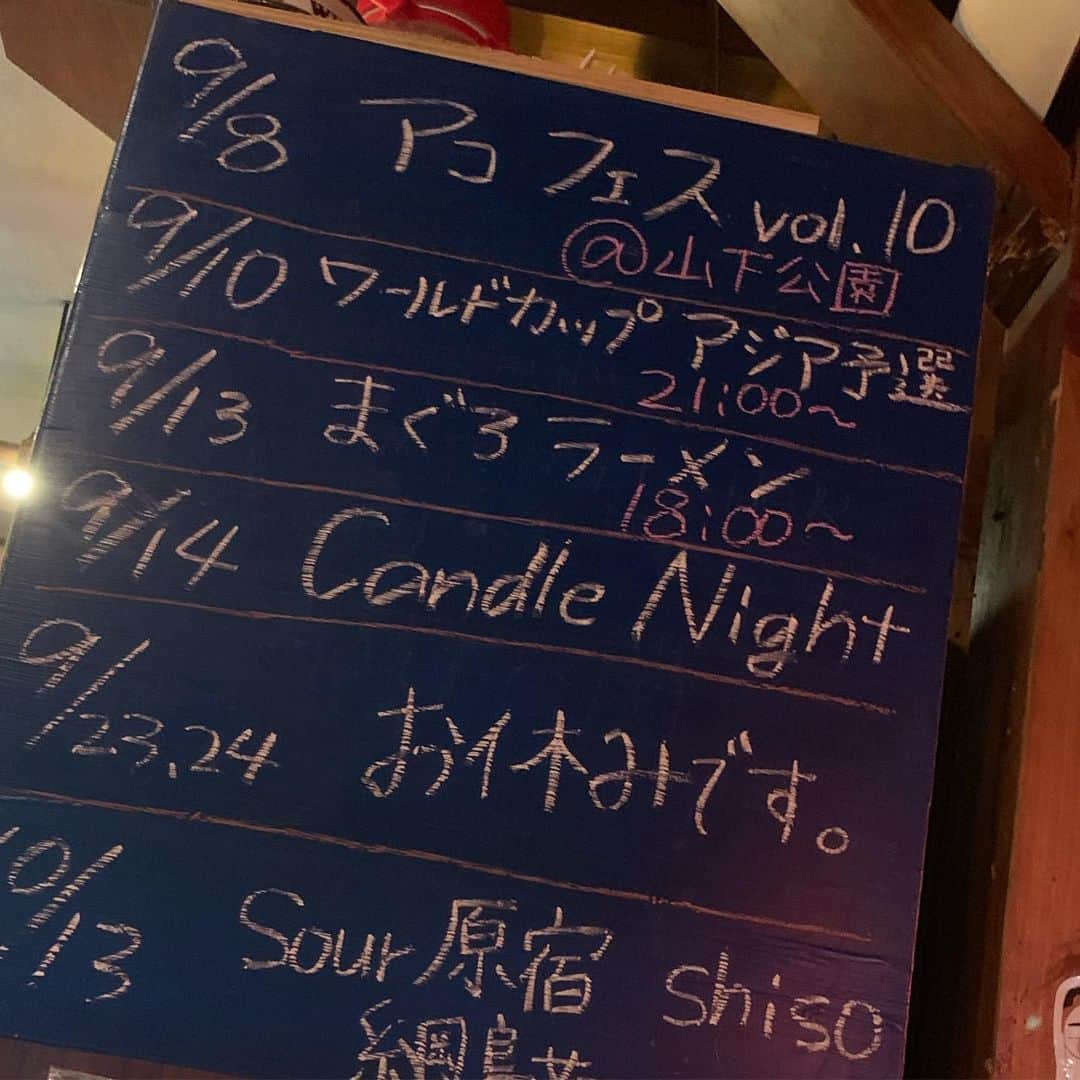 9/8 アコフェス vol.10
@山下公園
9/10 ワールドカップ アジア予選
21:00〜
9/13 まぐろ ラーメン
18:00〜
9/14 Candle Night
9/23,24 お休みです。
10/13 Sour原宿 Shiso
綱島